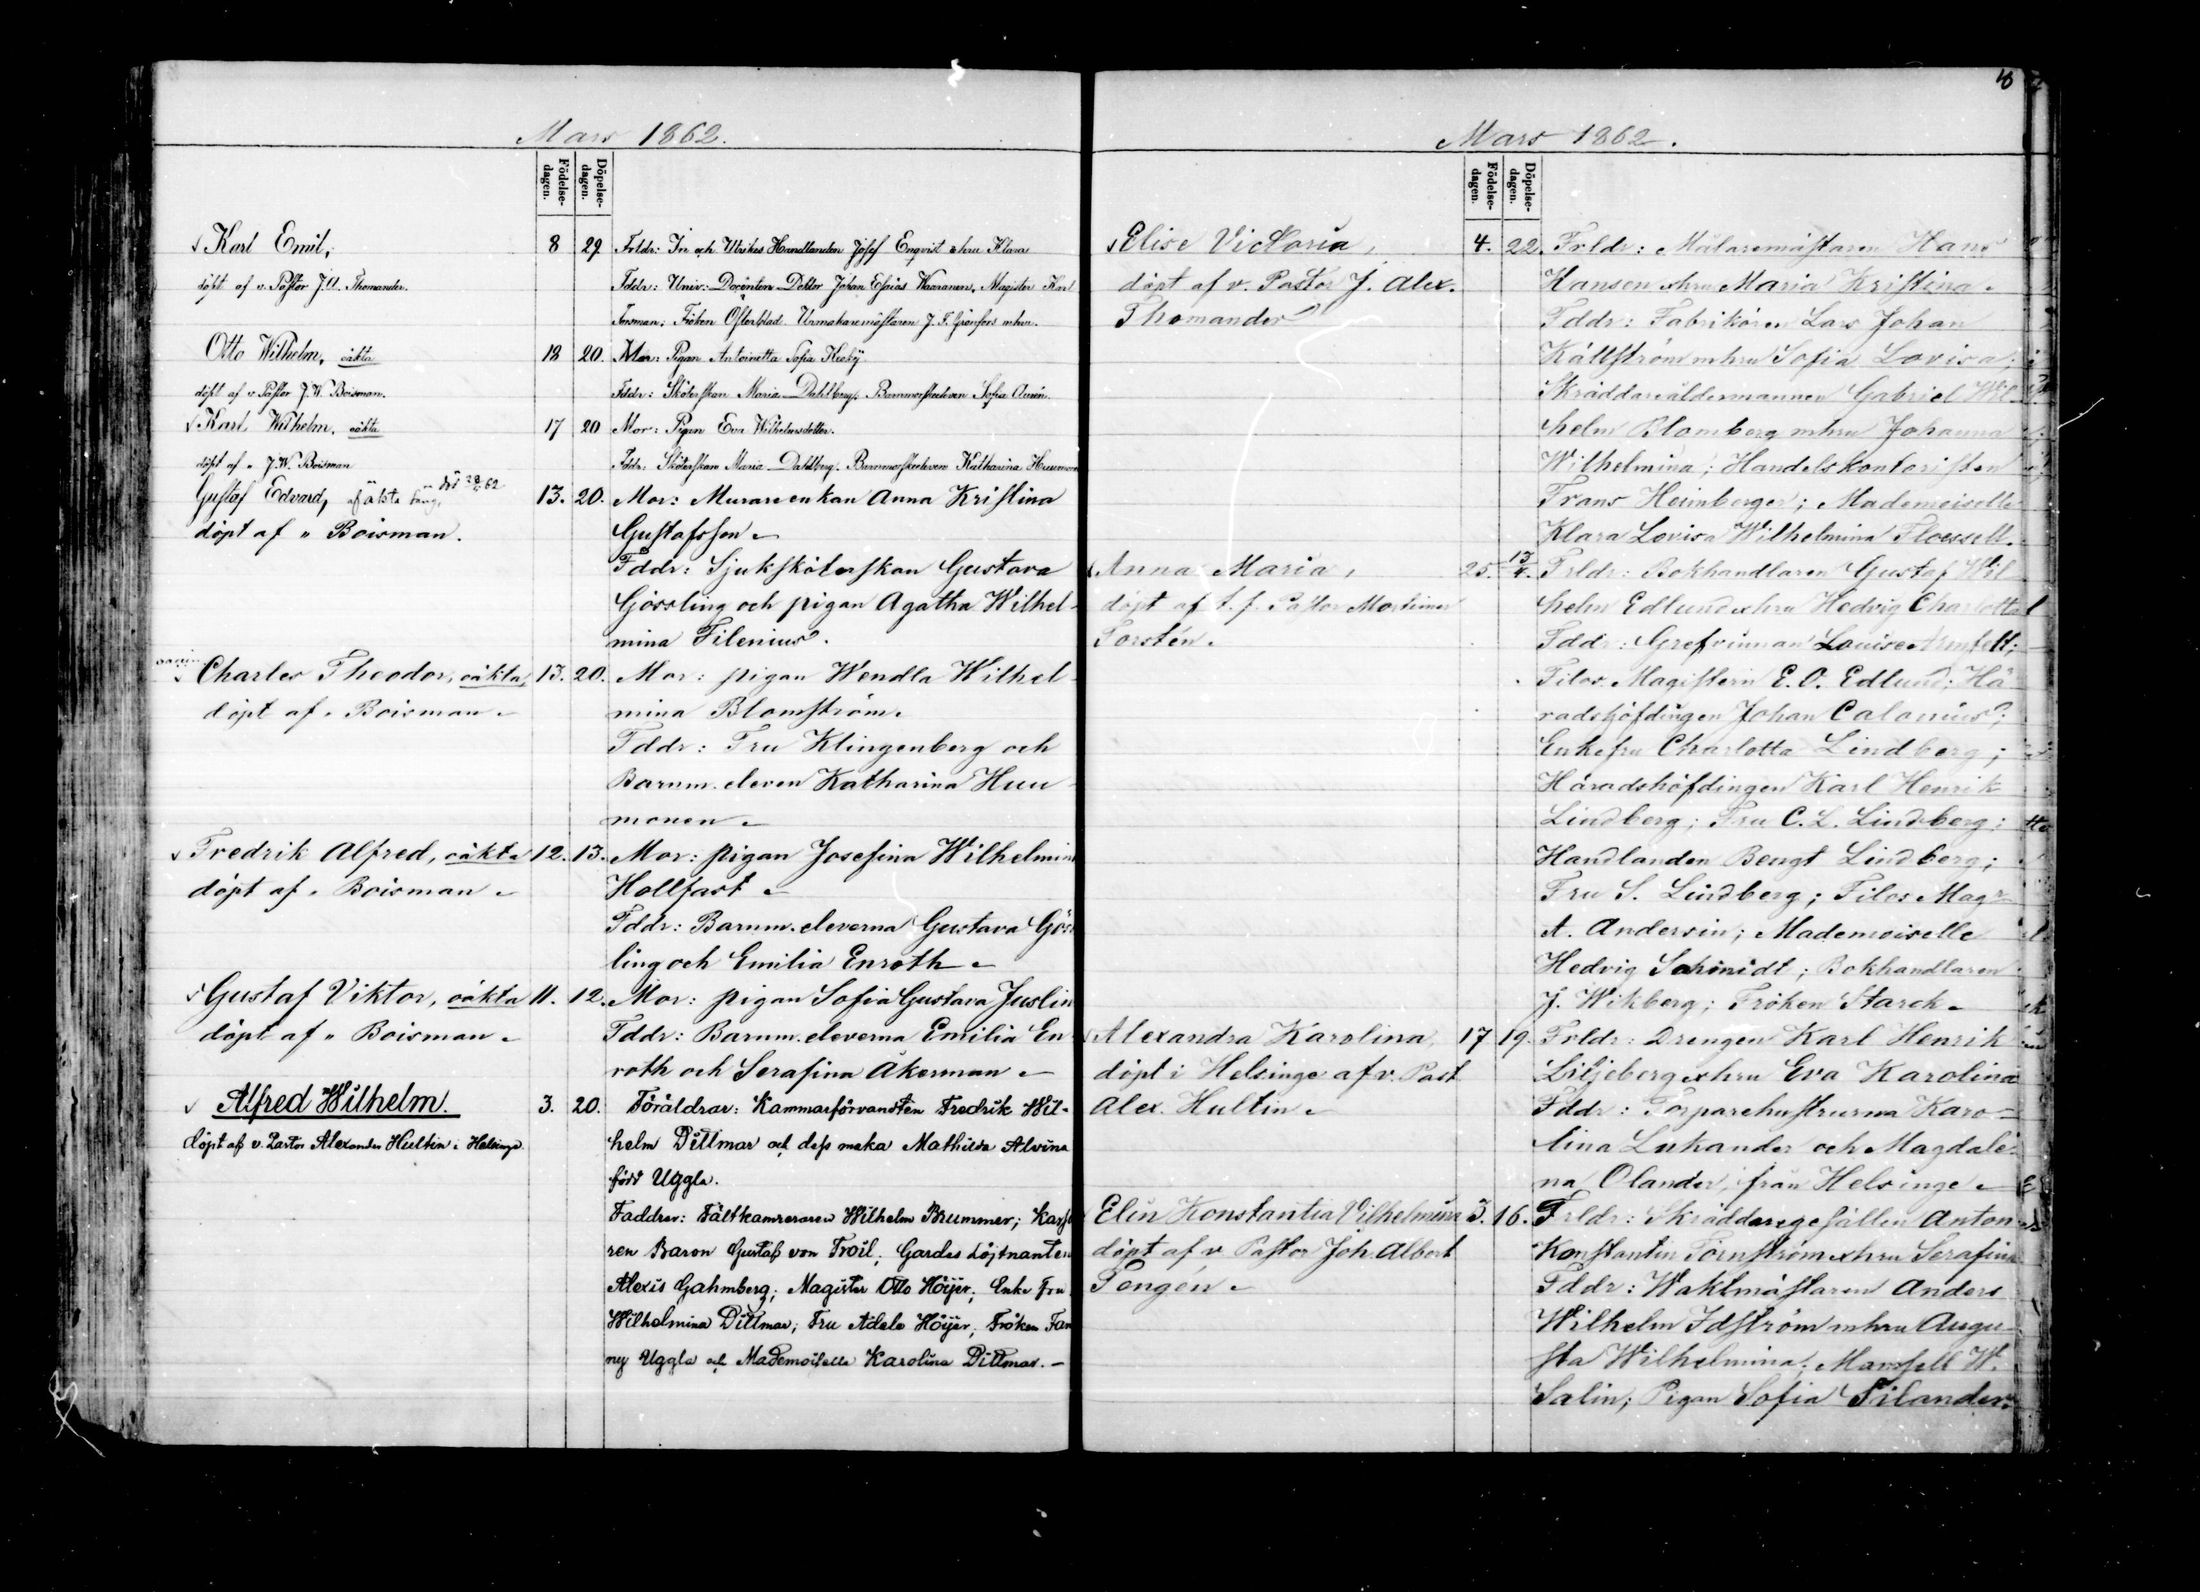 Mars 1862.
Födelse-
dagen.
Döpelse-
dagen.
Karl Emil,
döpt af v. Pastor J. A. Thomander.
8 29.
Frldr: In och Utrikes Handlanden Josef Enqvist & hu Klara
Fddr: Univ: Docenten Doktor Johan Esaias Waaranen, Magister Karl
Fröken Österblad. Urmakaremästaren J. F. Grönfors mhu.
Otto Wilhelm, oäkta
döpt af v. Pastor J. W. Boisman.
18 20.
Mor: Pigan Antoinetta Sofia
Fddr: Sköterskan Maria Dahlberg, Barnmorskeeleven Sofia Aurén.
Karl Wilhelm, oäkta
döpt af " J. W. Boisman
17 20
Mor: Pigan Eva Wilhelmsdotter.
Fddr: Sköterskan Maria Dahlberg, Barnmorskeeleven Katharina
Gustaf Edvard, af äkta säng,
döpt af " Boisman.
13. 20.
Mor: Murareenkan Anna Kristina
Gustafsson
Fddr: Sjuksköterskan Gustava
Gössling och pigan Agatha Wilhel-
mina Filenius.
Charles Theodor, oäkta
döpt af " Boisman
13. 20.
Mor: pigan Wendla Wilhel-
mina Blomström.
Fddr: Fru Klingenberg och
Barnm. eleven Katharina Huu-
monen
Fredrik Alfred, oäkta
döpt af " Boisman
12. 13.
Mor: pigan Josefina Wilhelmin
Hollfast
Fddr: Barnm. eleverna Gustava Göss
ling och Emilia Enroth
Gustaf Viktor, oäkta
döpt af " Boisman
11. 12.
Mor: pigan Sofia Gustava Juslin
Fddr: Barnm. eleverna Emilia En-
roth och Serafina Åkerman
Alfred Wilhelm.
döpt af v. Pastor Alexander Hultin i Helsinge.
3. 20.
Föräldrar: Kammarförvandten Fredrik Wil-
helm Dittmar och dess maka Mathilda Alvina
född Uggla.
Faddrar: Fältkamreraren Wilhelm Brummer;
ren Baron Gustaf von Troil; Gardes Löjtnanten
Alexis Gahmberg; Magister Otto Höijer; Enke fru
Wilhelmina Dittmar; Fru Adele Höijer; Fröken Fan
ny Uggla och Mademoiselle Karolina Dittmar.
Mars 1862.
Födelse-
dagen.
Döpelse-
dagen.
Elise Victoria,
döpt af v. Pastor J. Alex.
Thomander
4. 22.
Frldr: Målaremästaren Hans
Hansen & hru Maria Kristina
Fddr: Fabrikören Lars Johan
Källström mhru Sofia Lovisa;
Skräddareåldermannen Gabriel Wil
helm Blomberg mhru Johanna
Wilhelmina; Handelskontoristen
Frans Heimberger; Mademoiselle
Klara Lovisa Wilhelmina Floessell.
Anna Maria,
döpt af t. f. Pastor Mortimer
Forstén.
25. 13/4.
Frldr: Bokhandlaren Gustaf Wil
helm Edlund & hru Hedvig Charlotta
Fddr: Grefvinnan Louise Armfelt;
Filos. Magistern E. O. Edlund; Hä-
radshöfdingen Johan Calonius;
Enkefru Charlotta Lindberg;
Häradshöfdingen Karl Henrik
Lindberg; Fru C. L. Lindberg;
Handlanden Bengt Lindberg;
Fru S. Lindberg; Filos Mag:r
A. Andersin; Mademoiselle
Hedvig Schmidt; Bokhandlaren
J. Wikberg; Fröken Starck
Alexandra Karolina,
döpt i Helsinge af v. Past
Alex. Hultin
17 19.
Frldr: Drengen Karl Henrik
Liljeberg & hru Eva Karolina
Fddr: Torparehustrurna Karo-
lina Lukander och Magdale-
na Olander, från Helsinge
Elin Konstantia Vilhelmina
döpt af v. Pastor Joh. Albert
Tengén
3. 16.
Frldr: Skräddaregesällen Anton
Konstantin Törnström & hru Serafina
Fddr: Waktmästaren Anders
Wilhelm Idström mhru Augu-
sta Wilhelmina; Mamsell W.
Salin; Pigan Sofia Silander.